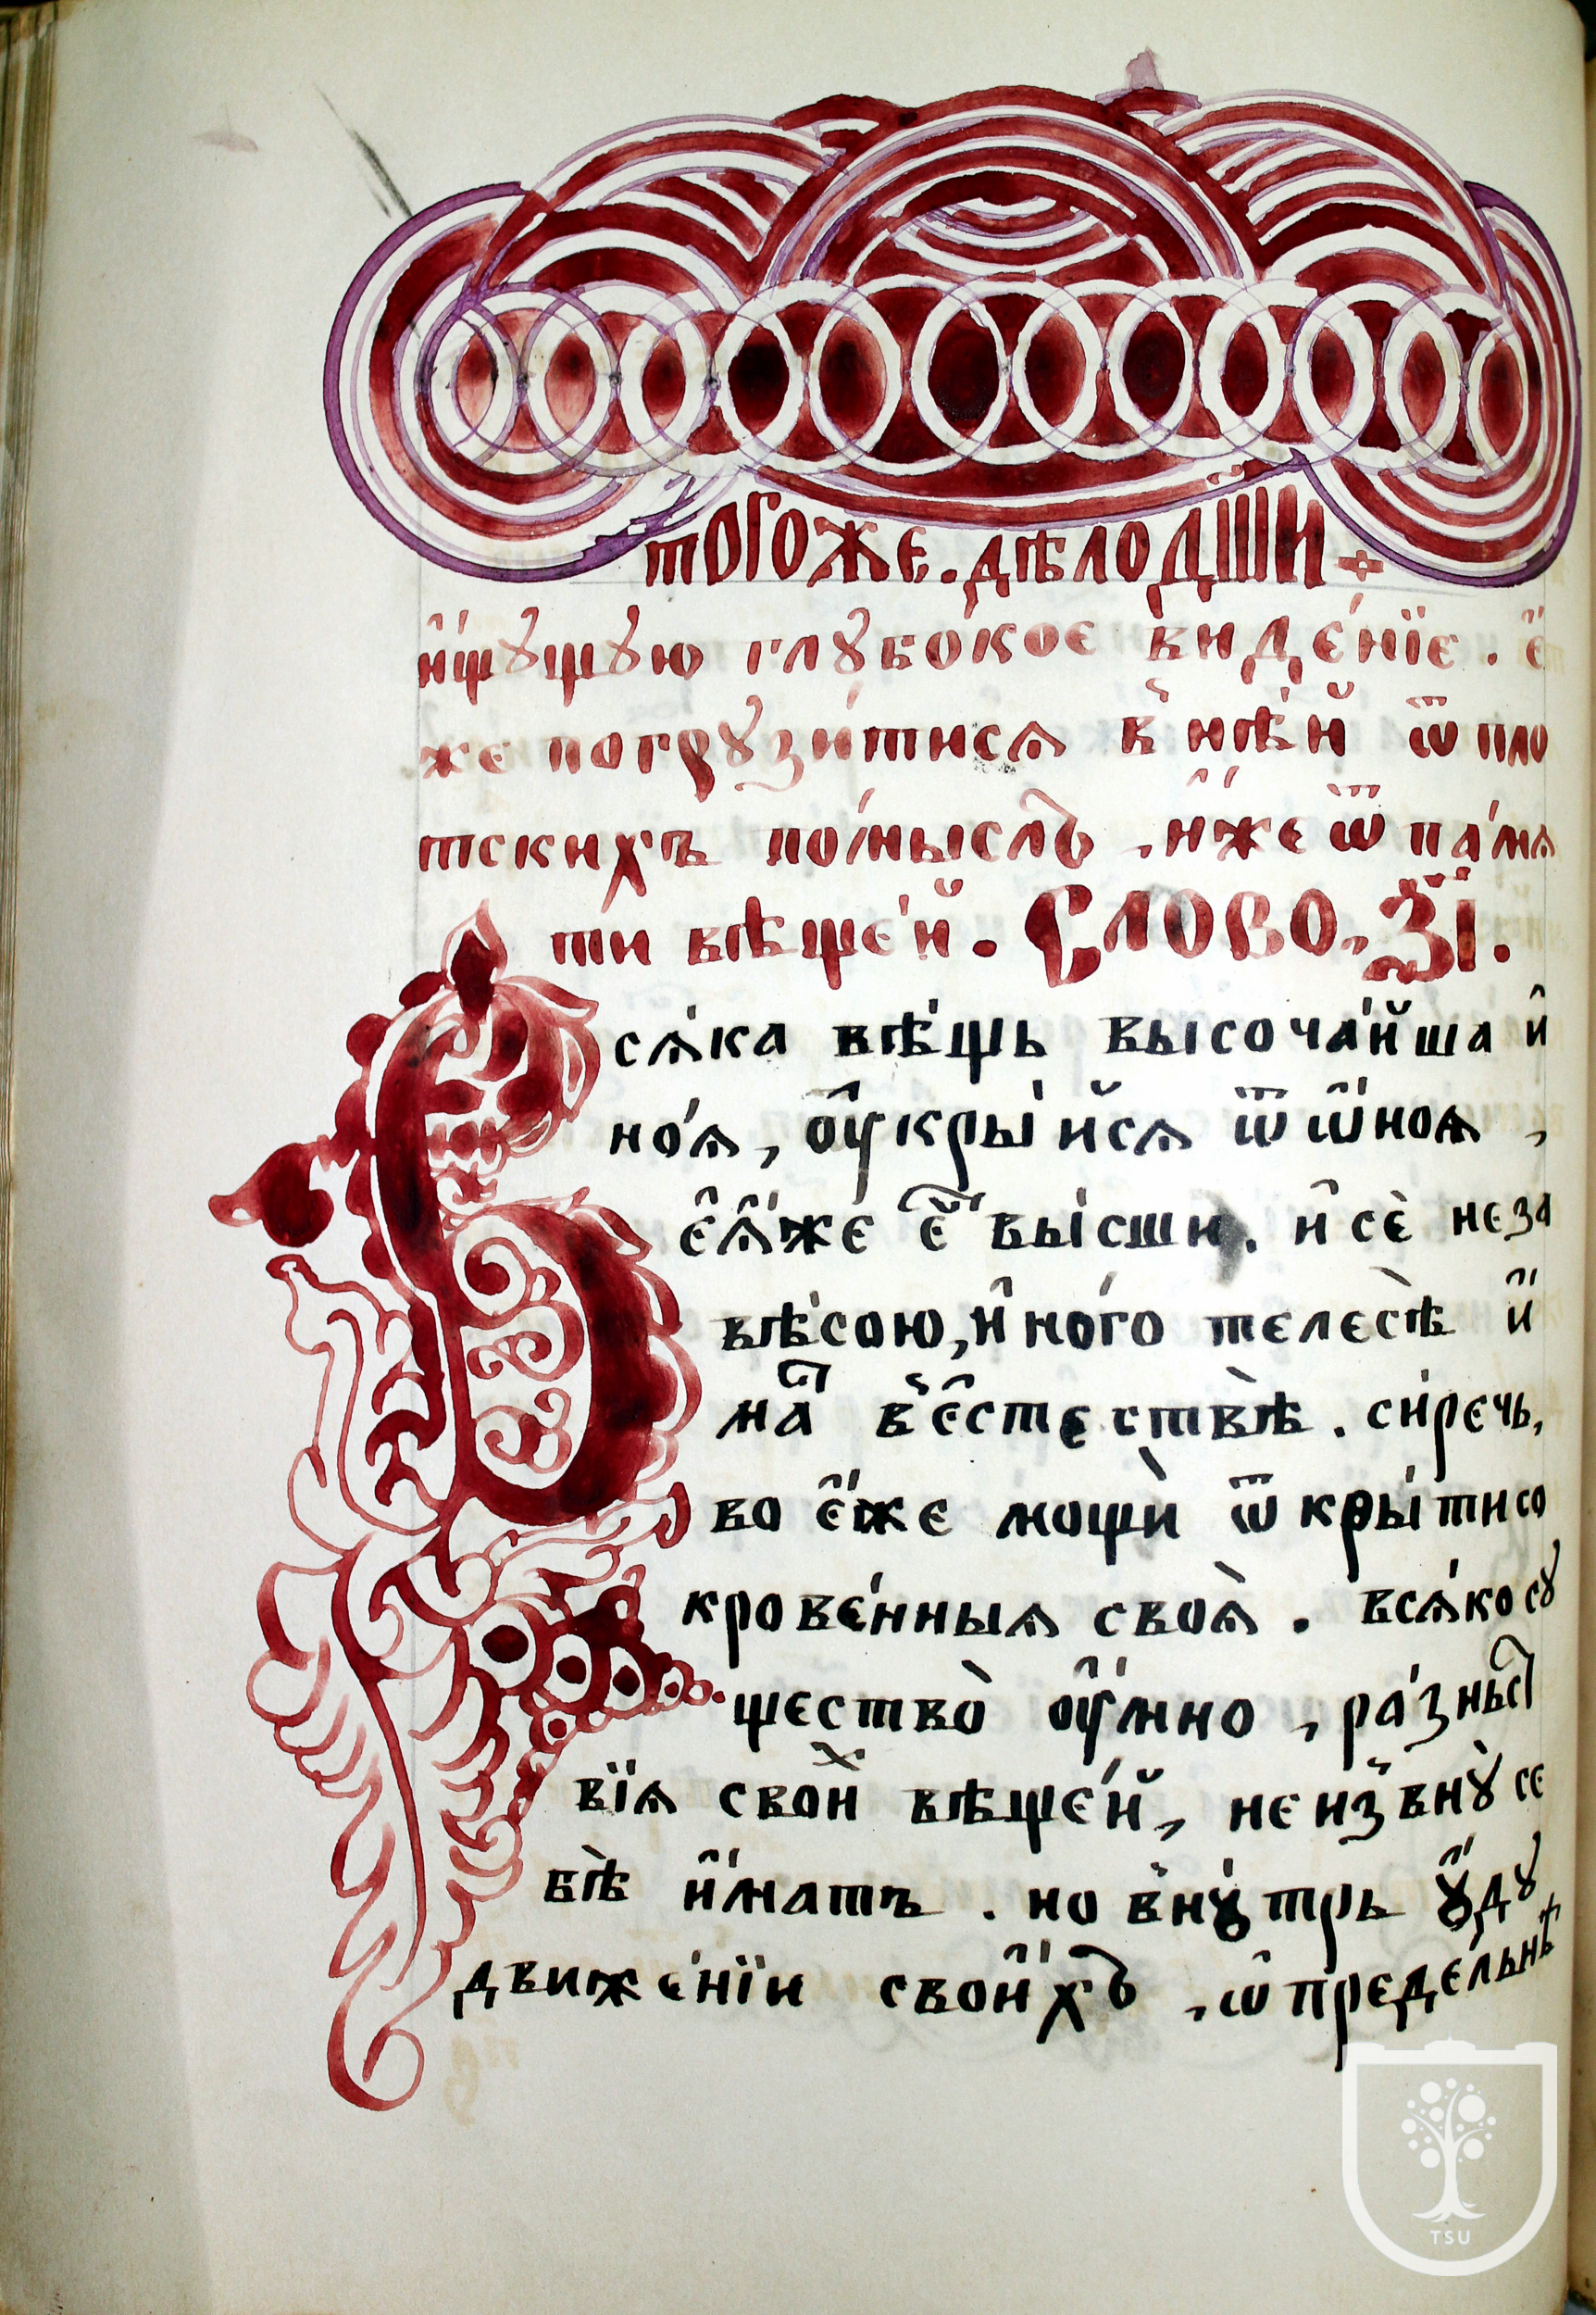 тогоже. дѣло дш҃и +
и҆́щꙋщꙋю глꙋбо́кое в̾иде́нїе. є҆́
же погрꙋзи́тисѧ в̾ нѣ́й ѿ пло
тскихъ по́мыслъ, и҆́же ѿ па́мѧ
ти вѣще́й. Слово, з҃і.
Всѧ́ка вѣ́щь высоча́йша и҆
но́ѧ, оу҆кры́йсѧ ѿ ѻ҆́ноѧ,
є҆ѧ҆́же є҆́ вы́сши. и҆ сѐ не за
вѣ́сою, и҆но́го телесѣ и҆́
маⷭ҇ в̾ є҆стествѣ̀. си́речь,
во є҆́же мощѝ ѿкры́ти со
крове́нныѧ своѧ̀. всѧ́ко сꙋ
щество̀ оу҆́мно, ра́зньⷭ҇
вїѧ свои̑ⷯ вѣще́й, не из̾внꙋ̀ се
бѣ̀ и҆́мать. но в̾нꙋ́трь ꙋ҆́дꙋ
движе́нїи свои́хъ, ѡ҆преде́льнѣ
TSU